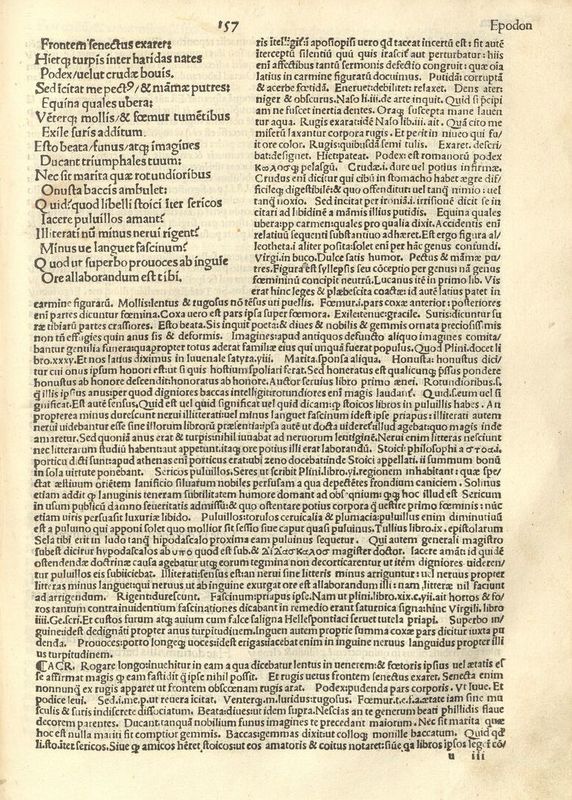 157
Epodon
Frontem senectus exaret:
Hietq; turpis inter haridas nates
Podex/uelut crudæ bouis.
Sed īcitat me pectꝰ/ & māmæ putres:
Equina quales ubera:
Vēterq; mollis/ & fœmur tumētibus
Exile suris additum.
Esto beata/funus/atq; imagines
Ducant triumphales tuum:
Nec sit marita quæ rotundioribus
Onusta baccis ambulet:
Quid? quod libelli stoici iter sericos
Iacere puluillos amant?
Illiterati nū minus nerui rigent?
Minus ue languet fascinum?
Quod ut superbo prouoces ab inguīe
Ore allaborandum est tibi.
ris
aposiopesis uero qd taceat incertū est: sit autē
silentiū quū quis irascit aut perturbatur: hiis
enī affectibus tantū sermonis defectio congruit: quæ oīa
latius in carmine figurarū docuimus. Putida: corruptā
& acerbe fœtida. Eneruet: debilitet: relaxet. Dens ater:
niger & obscurus. Naso li.iii. de arte inquit. Quid si
am ne fuscet inertia dentes. Oraq; suscepta mane lauen
tur aqua. Rugis exarat: idē Naso lib.iii. ait. Quā cito me
miserū laxantur corpora rugis. Et perit in niueo qui fu/
it ore color. Rugis: quibusdā semi tulis. Exaret. descri/
bat: designet. Hiet: pateat. Podex: est romanorū podex
κολοσ pelasgū. Crudæ.i. dure uel potius infirmæ.
Crudus enī dicitur qui cibū in stomacho habet ægre dif/
ficileq; digestibilē: & quo offenditur: uel tanq̄ nimio: uel
tanq̄ noxio. Sed incitat per ironiā.i. irrisionē dicit se in
citari ad libidinē a māmis illius putidis. Equina quales
ubera: pp carmen quales pro qualia dixit. Accidentis enī
relatiuū sequenti substantiuo adhæret. Est ergo figura al/
leotheta.i aliter posita: solet enī per hāc genus confundi.
Virgi.in buco. Dulce satis humor. Pectus & māmæ pu/
tres. Figura est syllepsis seu cōceptio per genus: nā genus
fœmininū concipit neutrū. Lucanus itē in primo lib. Vis
erat hinc leges & plæbescita coactæ: id autē latius patet in
carmine figurarū. Mollis: lentus & rugosus nō tēsus uti puellis. Fœmur.i. pars coxæ anterior: posteriores
enī partes dicuntur fœmina. Coxa uero est pars ipsa super fœmora. Exile: tenue: gracile. Suris: dicuntur su
ræ tibiarū partes crassiores. Esto beata. Sis inquit poeta: & diues & nobilis & gemmis ornata preciosissimis
non tñ effugies quin anus sis & deformis. Imagines: apud antiquos defuncto aliquo imagines comita/
bantur gentilia funera: quo propter totus aderat familiæ eius qui unquā fuerat populus. Quod Plini. docet li
bro.xxxv. Et nos latius diximus in Iuuenale satyra.viii. Marita. sponsa aliqua. Honusta: honustus dici/
tur cui onus ipsum honori est: ut si quis hostium spoliari ferat. Sed honeratus est qualicunq; pssus pondere
honustus ab honore descendit: honoratus ab honore. Auctor seruius libro primo ænei. Rotundioribus.s.
q̄ illis ipsius anus: per quod digniores baccas intelligit: rotundiores enī magis laudant̄. Quid.s. eum uel si
gnificat. Est autē sensus. Quid est uel quid significat uel quid dicam: q̄ stoicos libros in puluillis habes. An
propterea minus durescunt nerui illitterati: uel minus languet fascinum id est ipse priapus: illiterati autem
nerui uidebantur esse sine illorum librorū præsentia: ipsa autē ut docta uideret illud agebat: quo magis inde
amaretur. Sed quoniā anus erat & turpis: nihil iuuabat ad neruorum lentiginē. Nerui enim litteras nesciunt
nec litterarum studiū habent: aut appetunt: itaq; ore potius illi erat laborandū. Stoici: philosophi a στοα.i.
porticu dicti sunt: apud athenas enī porticus erat: ubi zeno docebat: inde Stoici appellati. ii summum bonū
in sola uirtute ponebant. Sericos puluillos. Seres ut scribit Plini. libro.vi. regionem inhabitant: quæ spe/
ctat æstiuum oriētem. lanificio siluarum nobiles perfusam a qua depectētes frondium caniciem. Solinus
etiam addit q̄ lanuginis teneram subtilitatem humore domant ad obsequium: hoc illud est Sericum
in usum publicū damno seueritatis admissū: & quo ostentare potius corpora q̄ uestire primo fœminis: nūc
etiam uiris persuasit luxuriæ libido. Puluillos: torulos ceruicalia & plumacia: puluillus enim diminutiuū
est a puluino qui apponi solet quo mollior sit sessio siue caput quasi puluinus. Tullius libro.ix. epistolarum
Sela tibi erit in ludo tanq̄ hipodascalo proxima eam puluinus sequetur. Qui autem generali magistro
subest dicitur hypodascalos ab υπο quod est sub. & διδασκαλοσ magister doctor. Iacere amāt id quidē
ostendendæ doctrinæ causa agebatur utq; eorum tegmina non decorticarentur ut item digniores uideren/
tur puluillos eis subiiciebat. Illiterati: sensus est: an nerui sine litteris minus arriguntur: uel neruus propter
litteras minus languet: qui neruus ut ab inguine exurgat ore est allaborandum illi: nam litteræ nil faciunt
ad arrigendum. Rigent: durescunt. Fascinum: priapus ipse. Nam ut plini. libro.xix.c.vii. ait hortos & fo/
ros tantum contra inuidentium fascinationes dicabant in remedio erant saturnica signa: hinc Virgili. libro
iiii. Georg. Et custos furum atq; auium cum falce saligna Hellespontiaci seruet tutela priapi. Superbo in/
guine: id est dedignāti propter anus turpitudinem. Inguen autem proprie summa coxæ pars dicitur iuxta pu
denda. Prouoces: porro longeq; uoces: id est erigas: iacebat enim in inguine neruus languidus propter illi
us turpitudinem.
¶ACR. Rogare longo: inuehitur in eam a qua dicebatur lentus in uenerem: & fœtoris ipsius uel ætatis es
se affirmat magis q̄ eam fastidit q̄ ipse nihil possit. Et rugis uetus frontem senectus exaret. Senecta enim
nonnunq̄ ex rugis apparet ut frontem obscœnam rugis arat. Podex: pudenda pars corporis. Vt Iuue. Et
podice leui. Sed.i.me.p. ut reuera icitat. Venterq;.m. luridus: rugosus. Fœmur.t.e.s.a. ætate iam sine mu
sculis & suris indiscrete dissociatum. Beata: diues: ut idem supra. Nescias an te generum beati phillidis flauæ
decorem parentes. Ducant. tanquā nobilium funus imagines te precedant maiorum. Nec sit marita quæ
hoc est nulla mariti sit comptior gemmis. Baccas: gemmas dixit: ut colloq; monille baccatum. Quid qd
li.sto. iter sericos. Siue q̄ amicos hēret stoicos: ut eos amatoris & coitus notaret: siue q̄a libros ipsos leget cō/
u iii